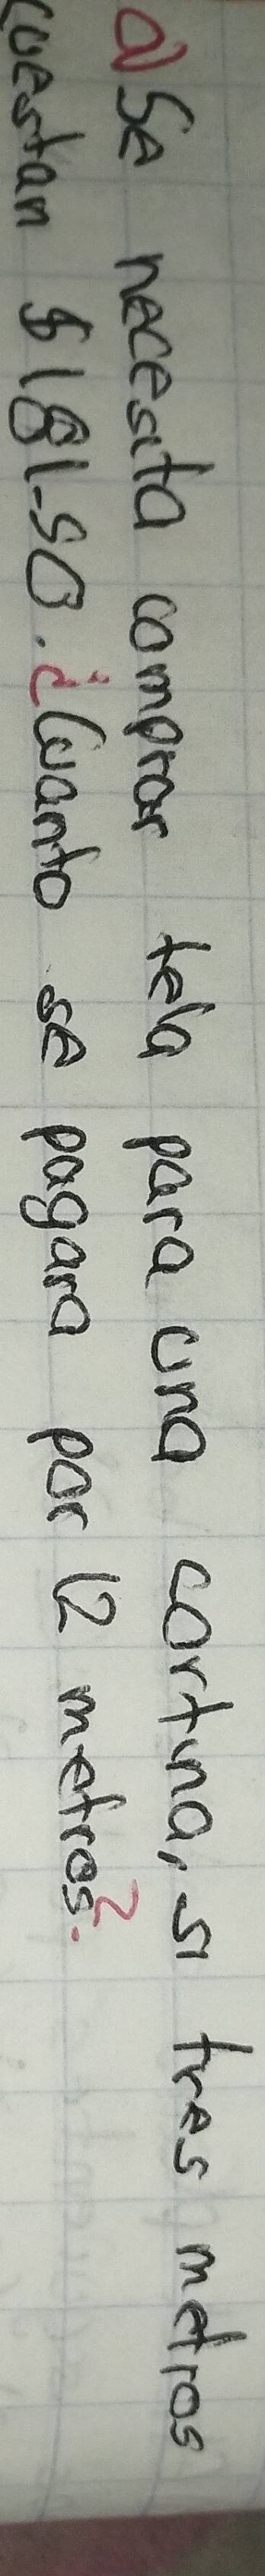 a) Se necesita comprar tela para una cortina, si tres metros
cuestan $181.50. ¿Cuanto se pagara por 12 metros?